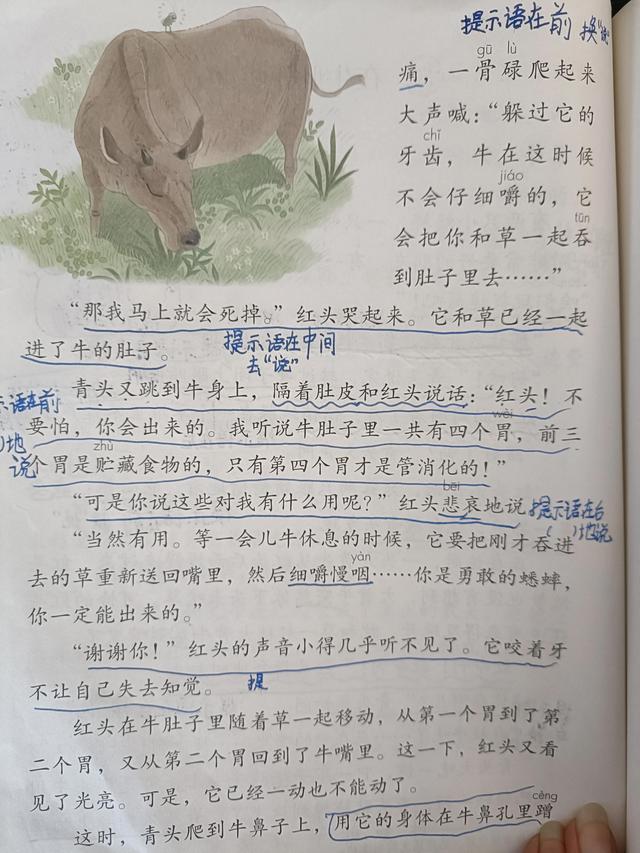 提示语在前 换"说"
gū lù
痛，一骨碌爬起来
大声喊：“躲过它的
chǐ
牙齿，牛在这时候
jiáo
不会仔细嚼的，它
tūn
会把你和草一起吞
到肚子里去……”
“那我马上就会死掉。”红头哭起来。它和草已经一起
进了牛的肚子。
提示语在中间
去“说”
青头又跳到牛身上，隔着肚皮和红头说话：“红头！不
示语在前
wèi
要怕，你会出来的。我听说牛肚子里一共有四个胃，前三
)地
说
zhù
个胃是贮藏食物的，只有第四个胃才是管消化的！”
bēi
“可是你说这些对我有什么用呢？”红头悲哀地说
提示语在后
( )地说
“当然有用。等一会儿牛休息的时候，它要把刚才吞进
yàn
去的草重新送回嘴里，然后细嚼慢咽……你是勇敢的蟋蟀，
你一定能出来的。”
“谢谢你！”红头的声音小得几乎听不见了。它咬着牙
不让自己失去知觉。
提
红头在牛肚子里随着草一起移动，从第一个胃到了第
二个胃，又从第二个胃回到了牛嘴里。这一下，红头又看
见了光亮。可是，它已经一动也不能动了。
cèng
这时，青头爬到牛鼻子上，用它的身体在牛鼻孔里蹭